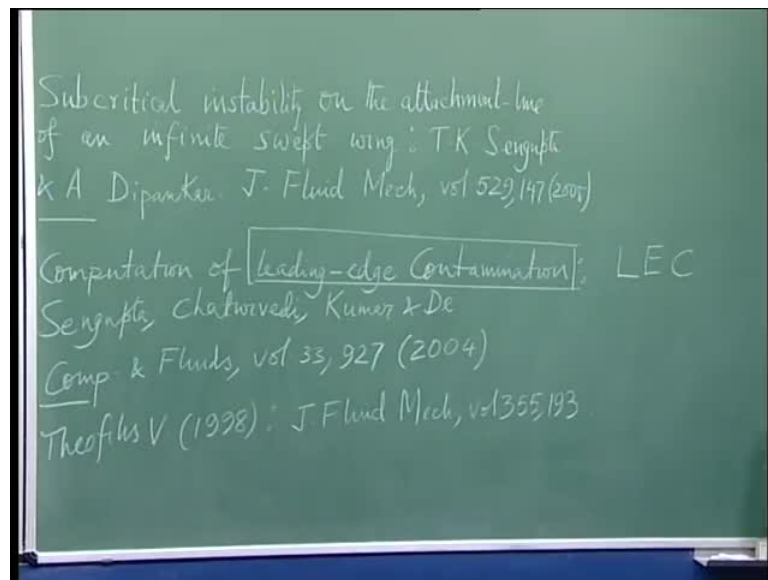 Subcritical instability on the attachment-line
of an infinite swept wing : TK Sengupta
& A Dipankar. J. Fluid Mech, vol 529, 147 (2005)
Computation of leading-edge Contamination : LEC
Sengupta, Chaturvedi, Kumar & De
Comp. & Fluids, vol 33, 927 (2004)
Theofilis V (1998) : J. Fluid Mech, vol 355, 193